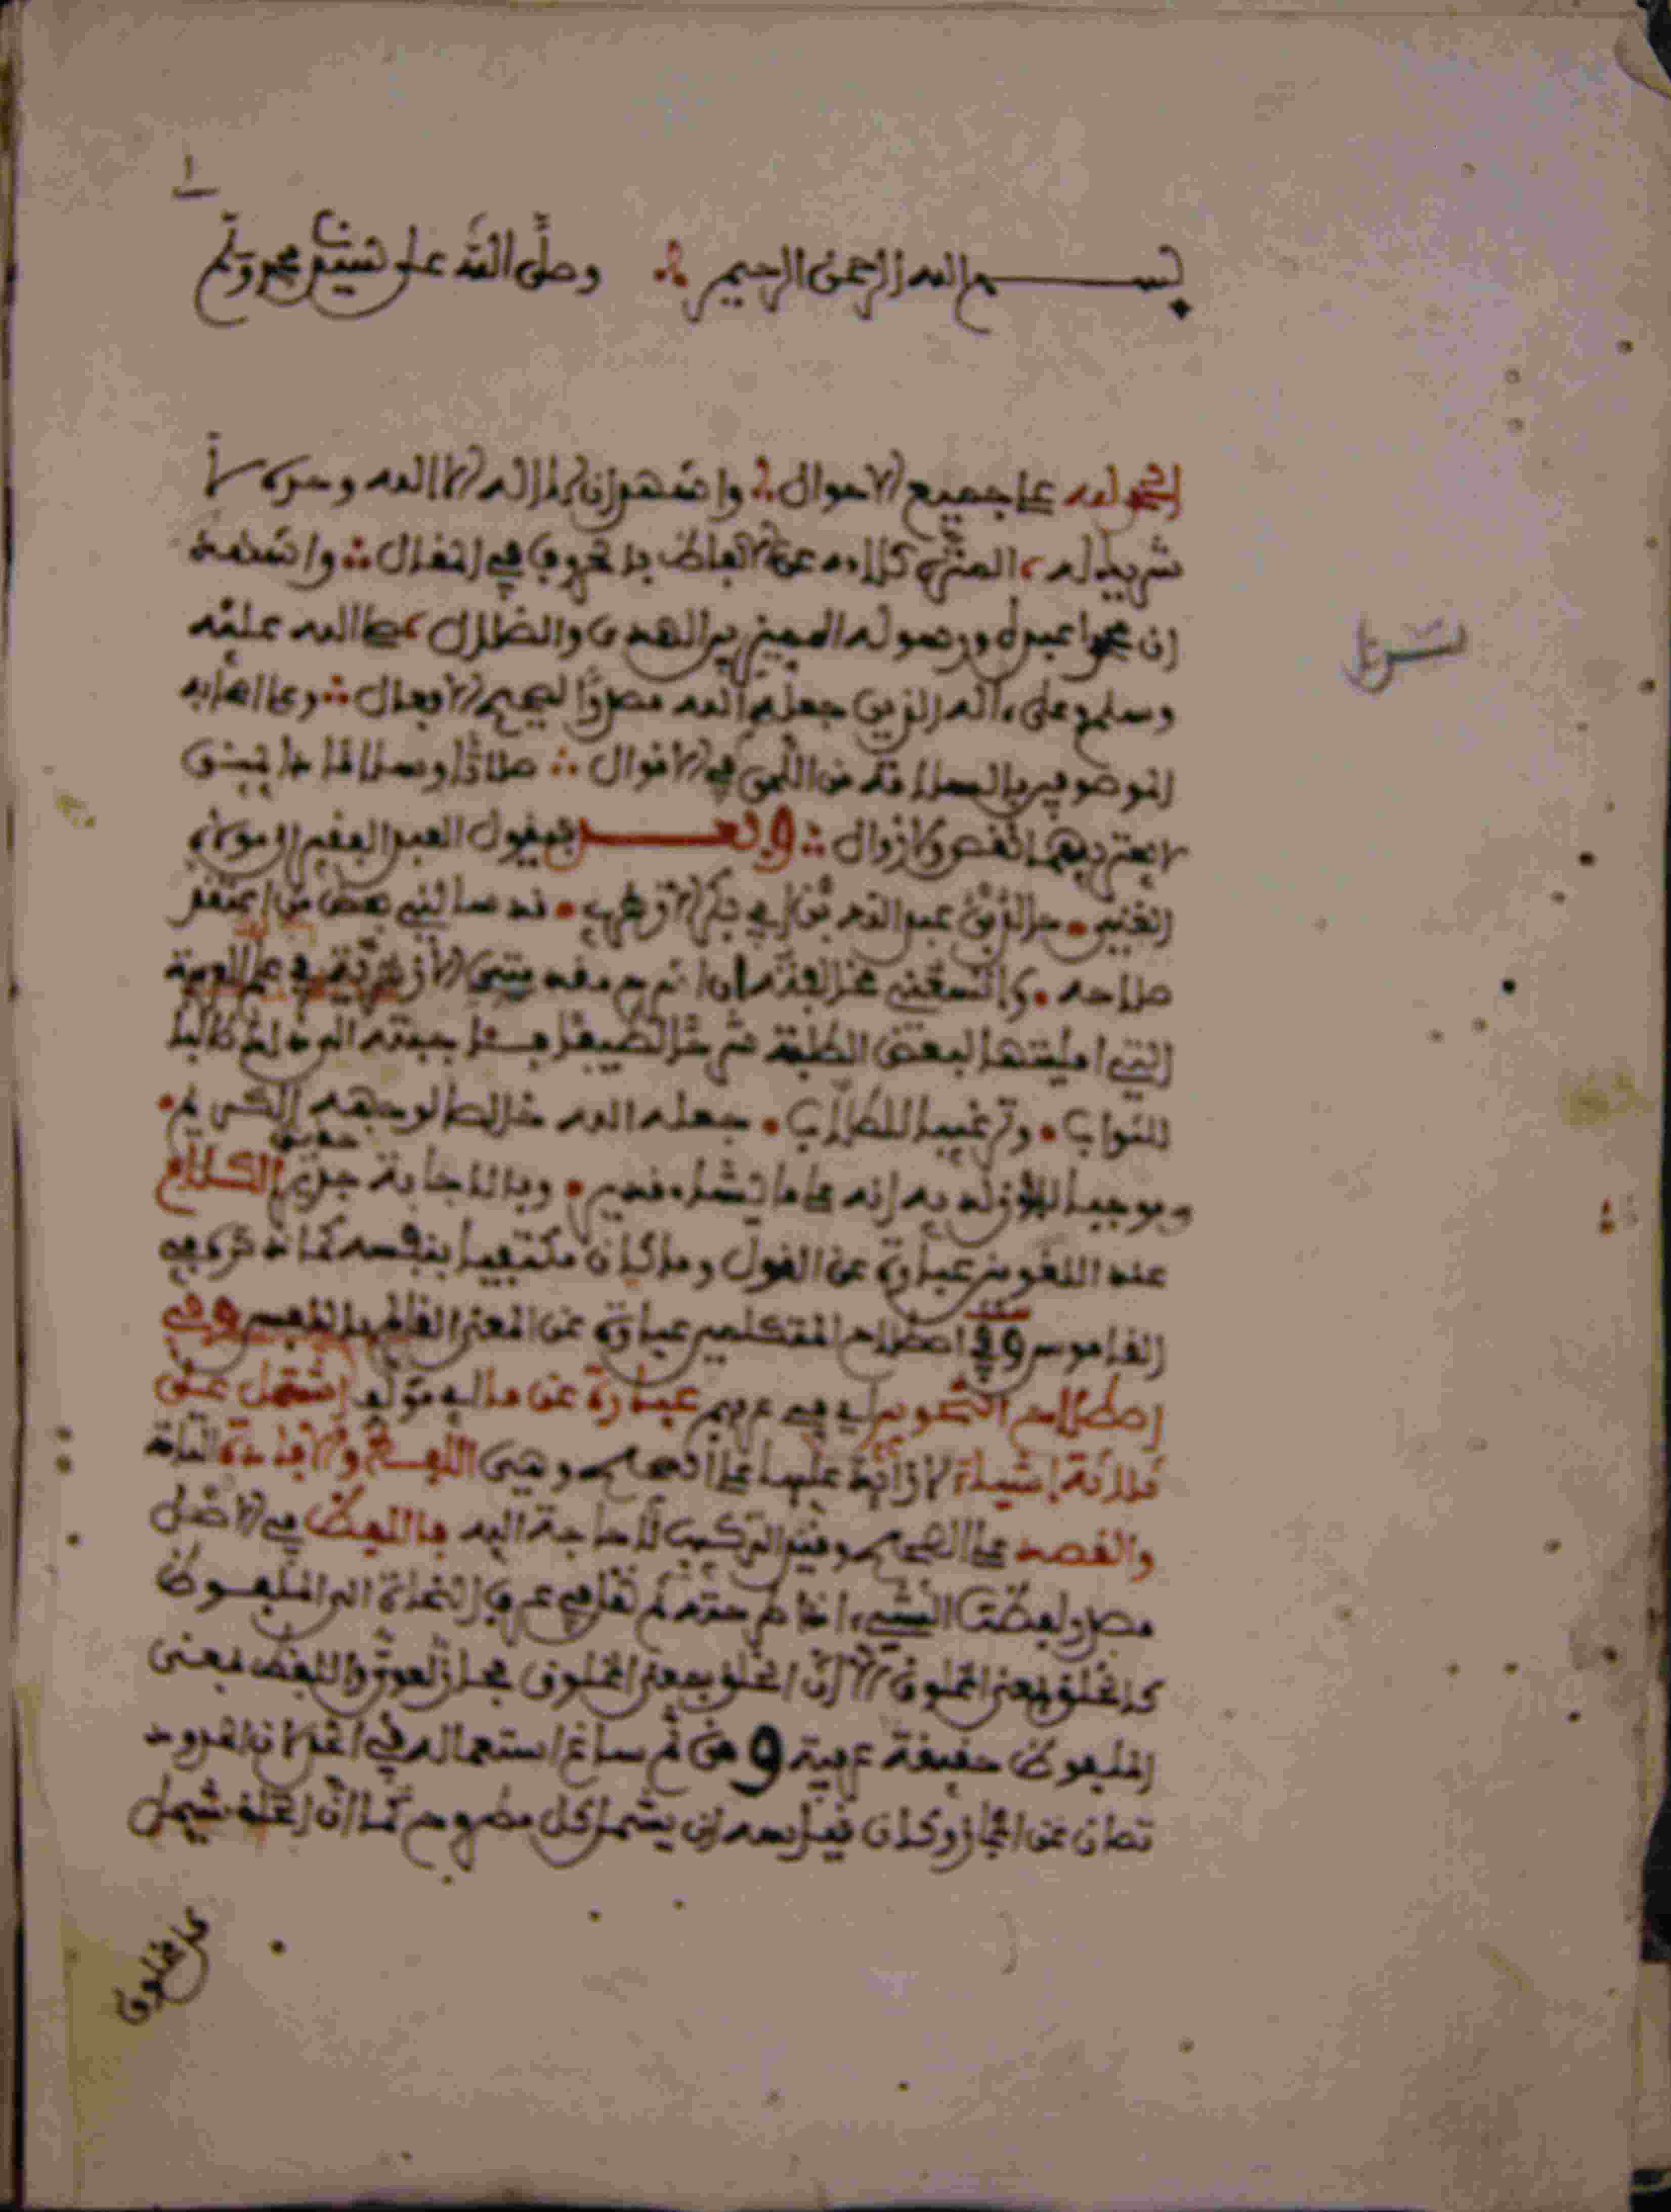 ١
بســـم الله الرحمن الرحيم وصلى الله على سيدنا محمد وسلم
الحمد لله على جميع الاحوال واشهد ان لا اله الا الله وحده لا
شريك له المنزه كلامه عن الالفاظ بالحروف في المقال واشهد
ان محمدا عبده ورسوله المميز بين الهدى والضلال صلى الله عليه
وسلم وعلى ءاله الذين جعلهم الله مصدرا لجميع الافعال وعلى اصحابه
الموصوفين بالسلامة من اللحن في الاقوال صلاة وسلاما
لا يعتريهما نقص ولا زوال وبعـــد فيقول العبد الفقير الى مولاه
الغني خالد بن عبد الله بن ابي بكر الازهري قد سالني بعض من اعتقد
صلاحه ولا تسعني مخالفته ان اشرح مقدمتي الازهرية في علم العربية
التي امليتها لبعض الطلبة شرحا لطيفا فاجبته الى ذلك طالبا
للثواب وترغيبا للطلاب جعله الله خالصا لوجهه الكريم
وموجبا للفوز لديه انه على ما يشاء قدير وبالاجابة جدير الكلام
حقيق
عند اللغويين عبارة عن القول وما كان مكتفيا بنفسه كما ذكره في
القاموس وفي اصطلاح المتكلمين عبارة عن المعنى القائم بالنفس وفي
اصطلاح النحويين اي في عرفهم عبارة عن ما اي مؤلف اشتمل على
ثلاثة اشياء لا زائد عليها على الصحيح وهي اللفظ والافادة التامة
والقصد على الصحيح وقيد التركيب لا حاجة اليه فاللفظ في الاصل
مصدر لفظت الشيء اذا طرحته ثم نقل في عرف النحاة الى الملفوظ
كالخلق بمعنى المخلوق الا ان الخلق بمعنى المخلوق مجاز لغوي واللفظ بمعنى
الملفوظ حقيقة عرفية ومن ثم ساغ استعماله في الحد لان الحدود
تصان عن المجاز وكان قياسه ان يشمل كل مطروح كما ان الخلق شمل
كل مخلوق